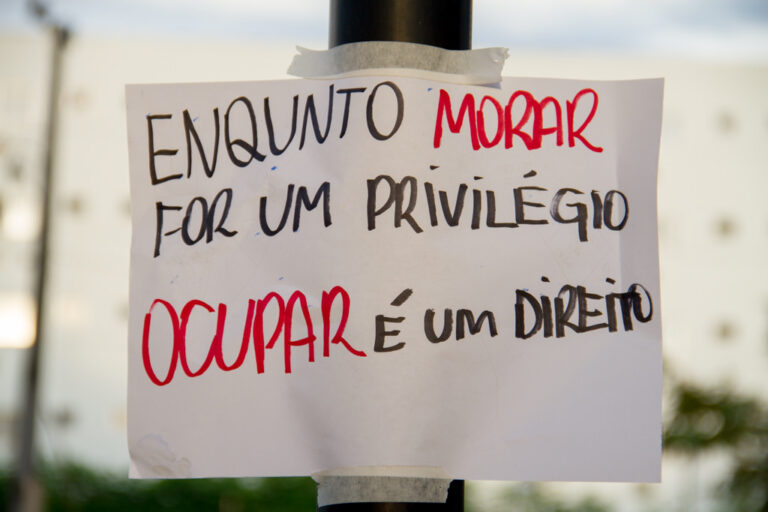 ENQUNTO MORAR
FOR UM PRIVILÉGIO
OCUPAR É UM DIREITO